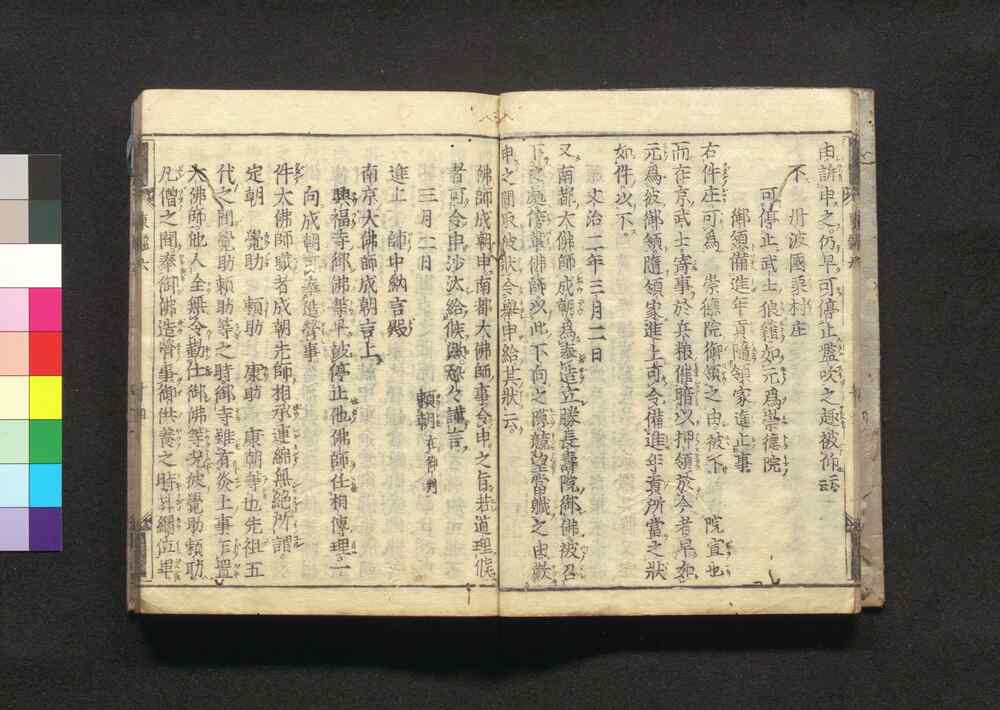 由訴申之仍早可停止濫吹之趣被仰云云
下 丹波國栗村庄
可停止武士狼藉如元爲崇德院
御領備進年貢隨領家進止事
右件庄可爲 崇德院御領之由被下 院宣也
而在京武士寄事於兵粮催暗以押領於今者早如
元爲彼御領隨領家進上可令備進年貢所當之狀
如件以下
文治二年三月二日
又南都大佛師成朝爲奉造立勝長壽院御佛被召
下之處傍輩佛師以此下向之隙競望當職之由歎
申之間取彼狀令擧申給其狀云
佛師成朝申南都大佛師事令申之旨若道理候
者可令申沙汰給候恐々謹言
三月二日 頼朝在御判
進上 師中納言殿
南京大佛師成朝言上
興福寺御佛等早被停止他佛師仕相傳理一
向成朝可奉造營事
件大佛師職者成朝先師相承連綿無絶所謂
定朝 覺助 頼助 康助 康朝等也先祖五
代之間覺助頼助等之時御寺雖有炎上事下遇
大佛師他人全無令勤仕御佛等况彼覺助頼助
凡僧之間奉御佛造營事御供養之時昇綱位畢